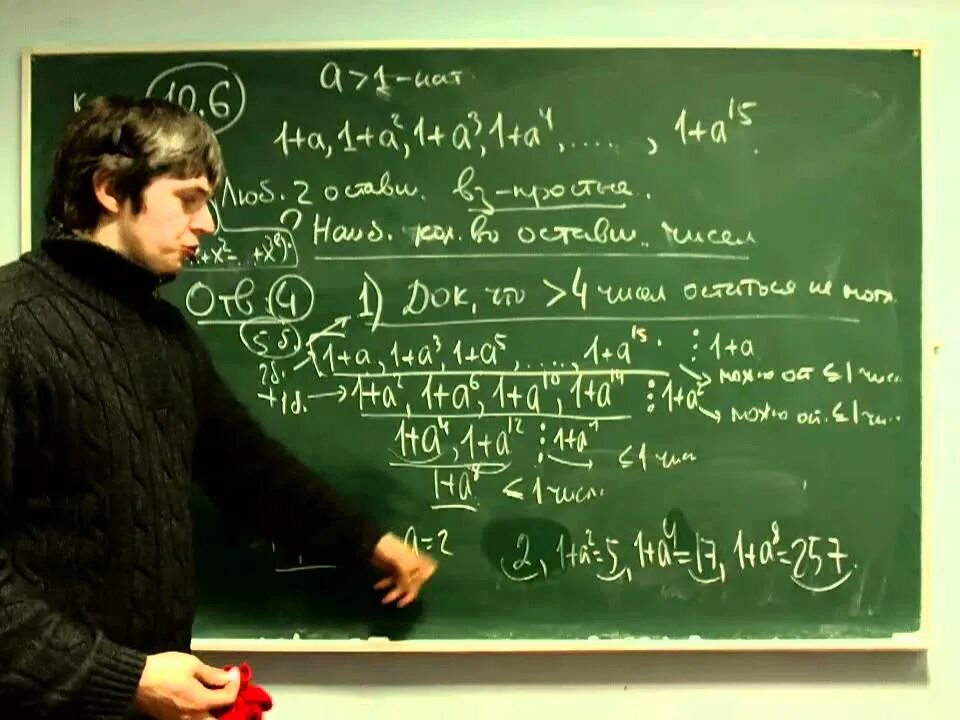 10.6 a > 1 - нат.
1+a, 1+a², 1+a³, 1+a⁴, ...., 1+a¹⁵.
Люб. 2 оставш. вз-простые.
? Наиб. кол. во оставш. чисел
+x²=
Отв: 4 1) Док, что > 4 чисел остаться не могл.
5б. 1+a, 1+a³, 1+a⁵, ...., 1+a¹⁵. ⋮ 1+a
2б. можно ост ≤ 1 числ.
+1б. → 1+a², 1+a⁶, 1+a¹⁰, 1+a¹⁴ ⋮ 1+a²
можно ост. ≤ 1 чи..
1+a⁴, 1+a¹² ⋮ 1+a⁴ ≤ 1 числ
1+a⁸ ≤ 1 числ.
a=2 2, 1+a²=5, 1+a⁴=17, 1+a⁸=257.